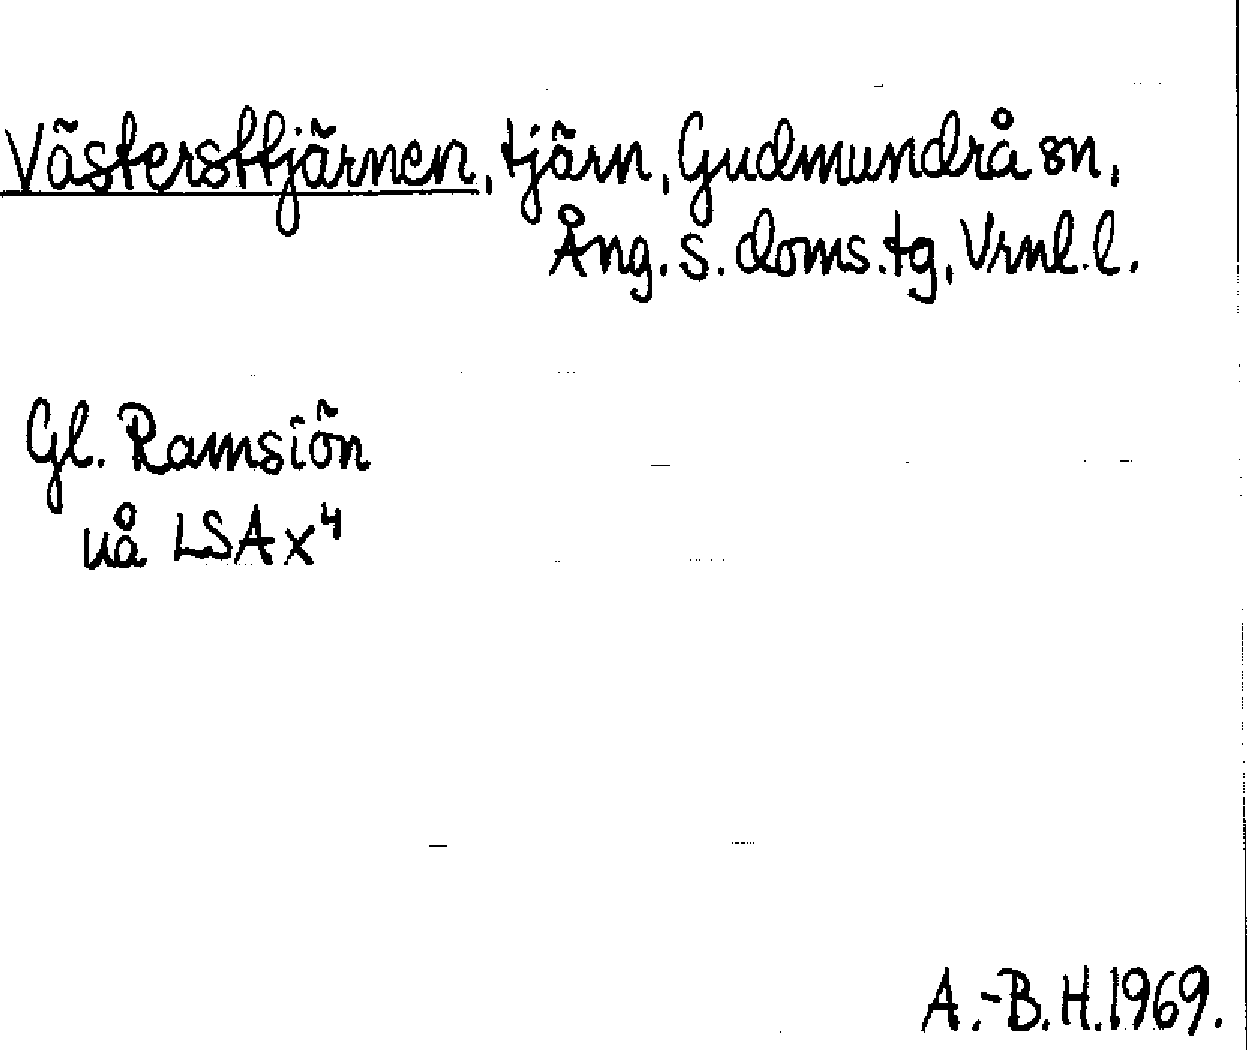 Västersttjärnen, tjärn, Gudmundrå sn,
Ång. s. doms.tg, Vrnl. l.
Gl. Ramsiön
uå LSA X⁴
A.-B. H. 1969.